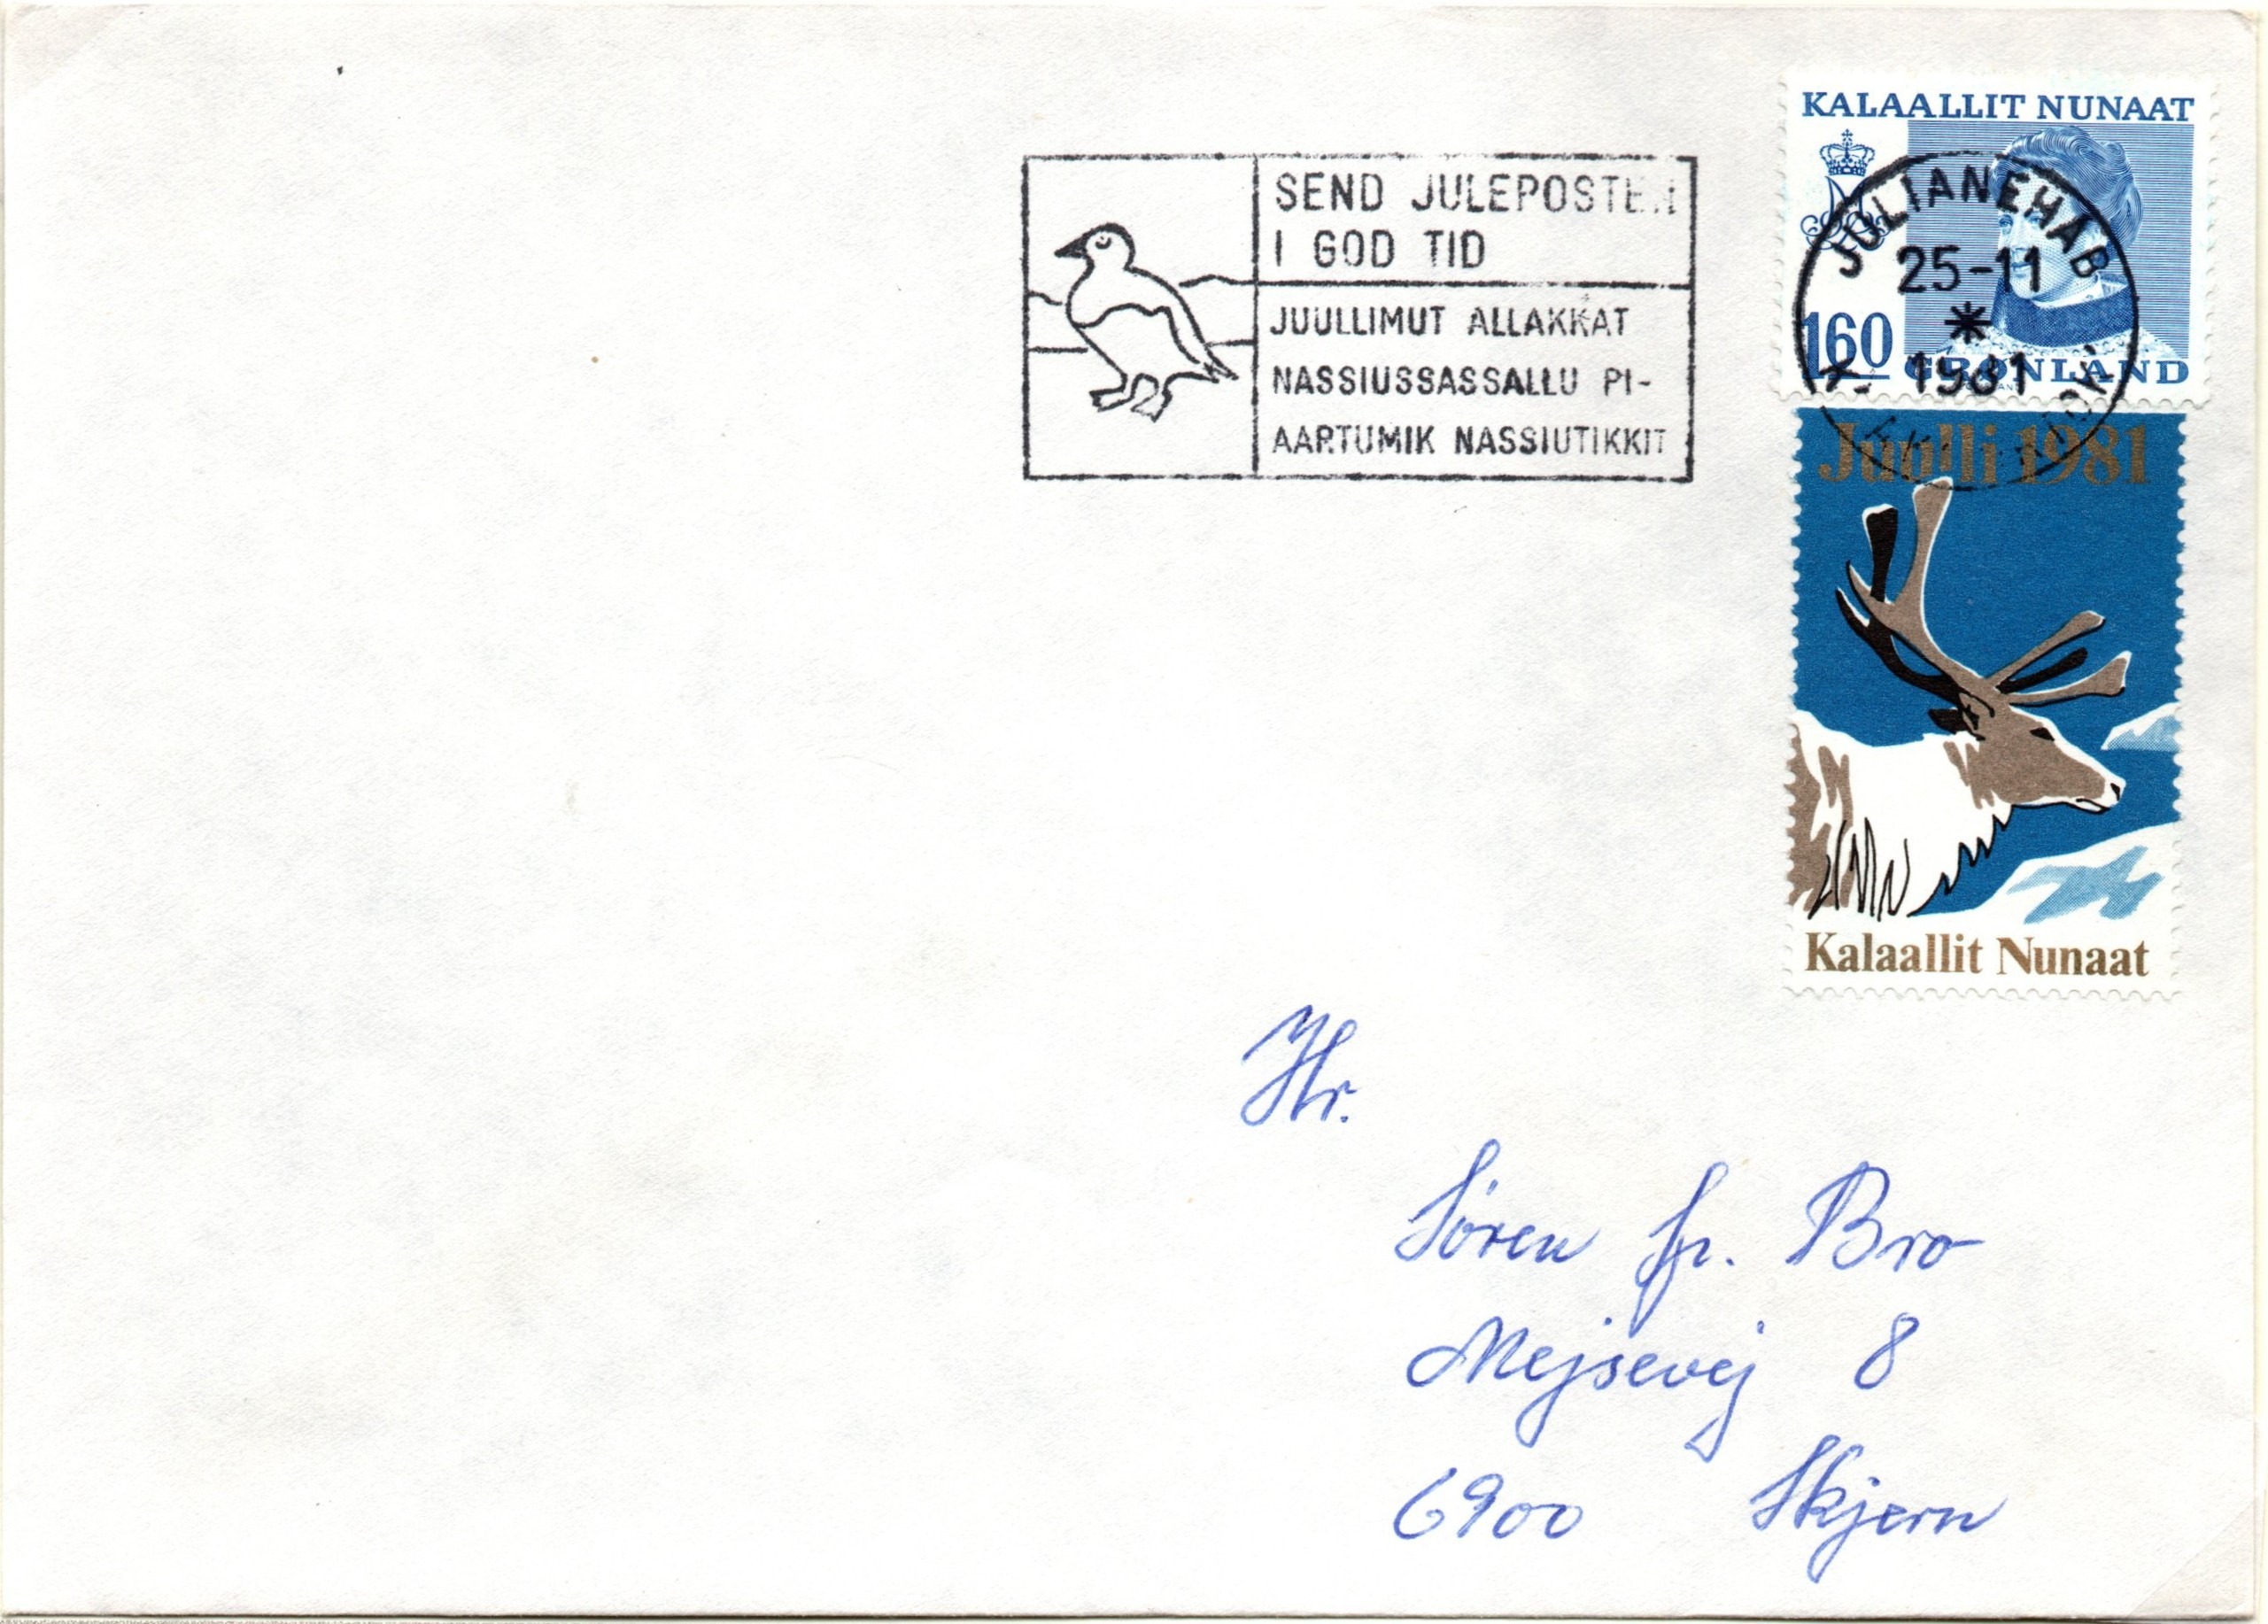 KALAALLIT NUNAAT
160 GRØNLAND
JULIANEHÅB
25-11
1981
SEND JULEPOSTEN
I GOD TID
JUULLIMUT ALLAKKAT
NASSIUSSASSALLU PI-
AARTUMIK NASSIUTIKKIT
Juulli 1981
Kalaallit Nunaat
Hr.
Søren Sp. Bro
Mejsevej 8
6900 Skjern